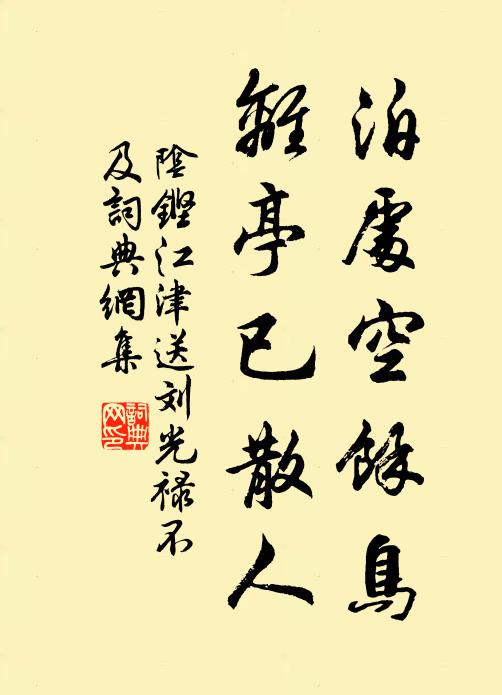 泊處空餘鳥
離亭已散人
陰鏗江津送刘光禄不
及詞典網集
詞典
网印